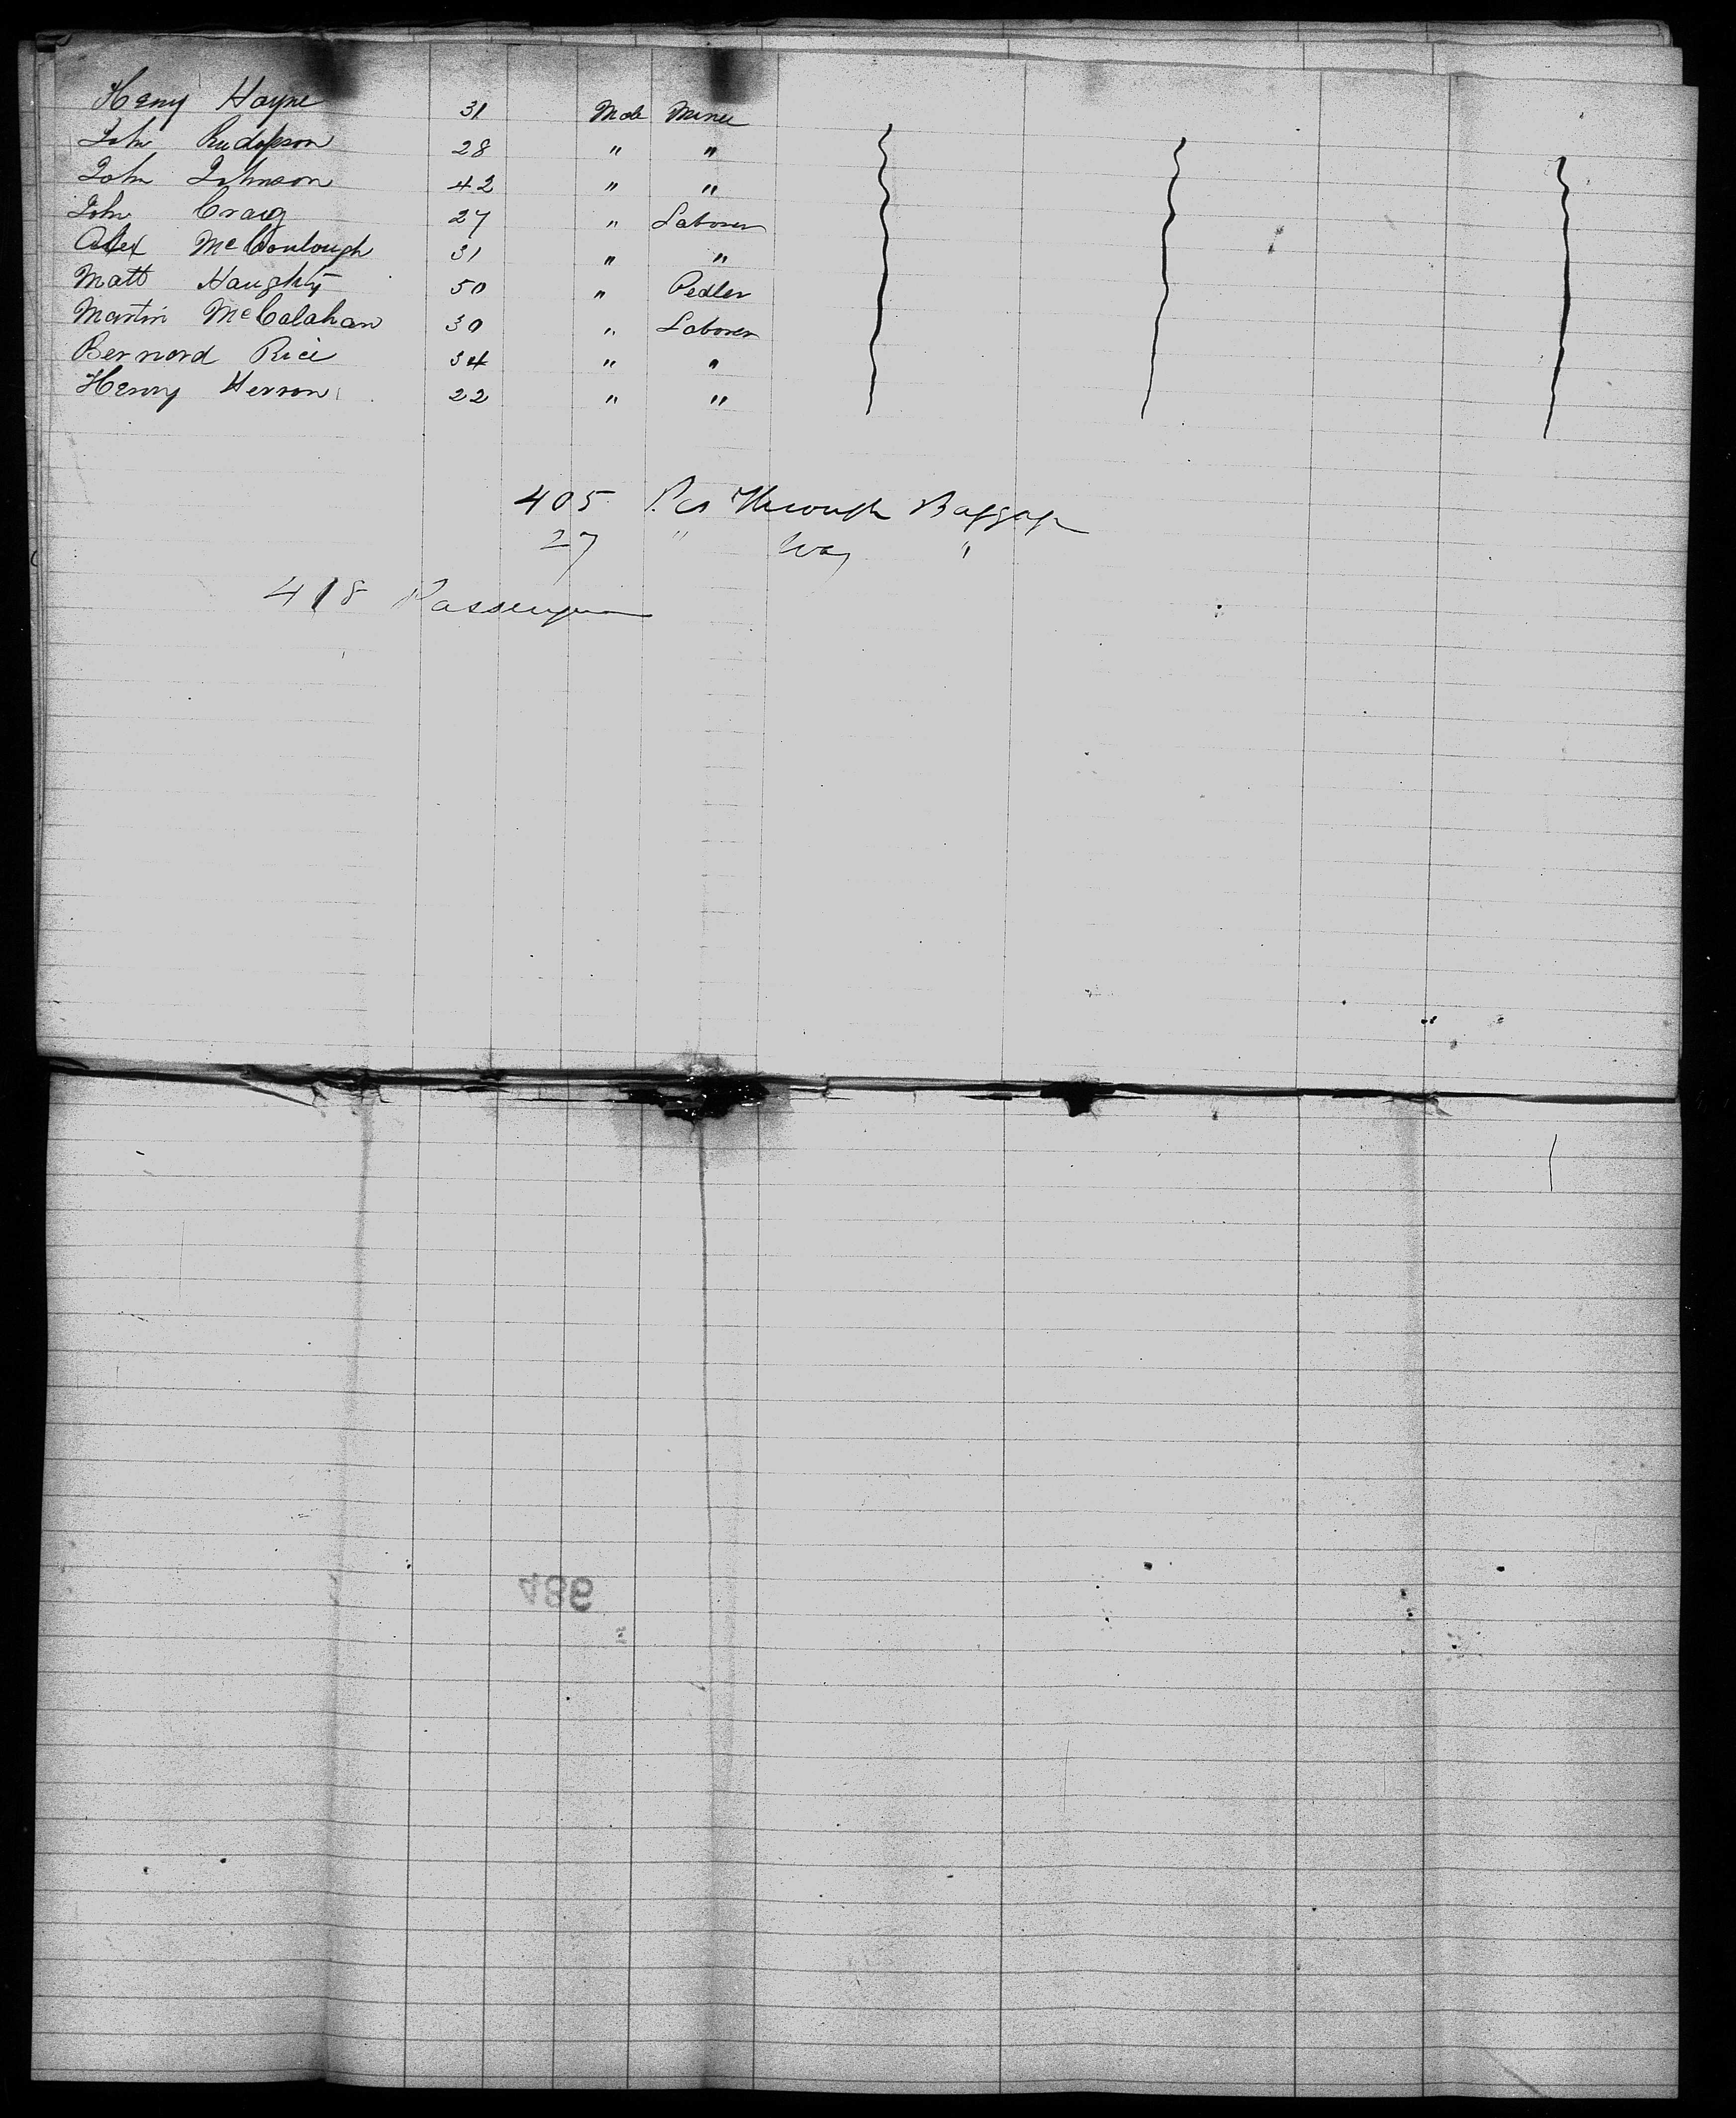 Henry Hayne 31 Male Miner
John Rudolpson 28 " "
John Johnson 42 " "
John Craig 27 " Laborer
Alex McCoulough 31 " "
Matt Haughty 50 " Pedler
Martin McCalahan 30 " Laborer
Bernard Rice 34 " "
Henry Herron 22 " "
405 Pcs Through Baggage
27 " Way "
418 Passengers
486